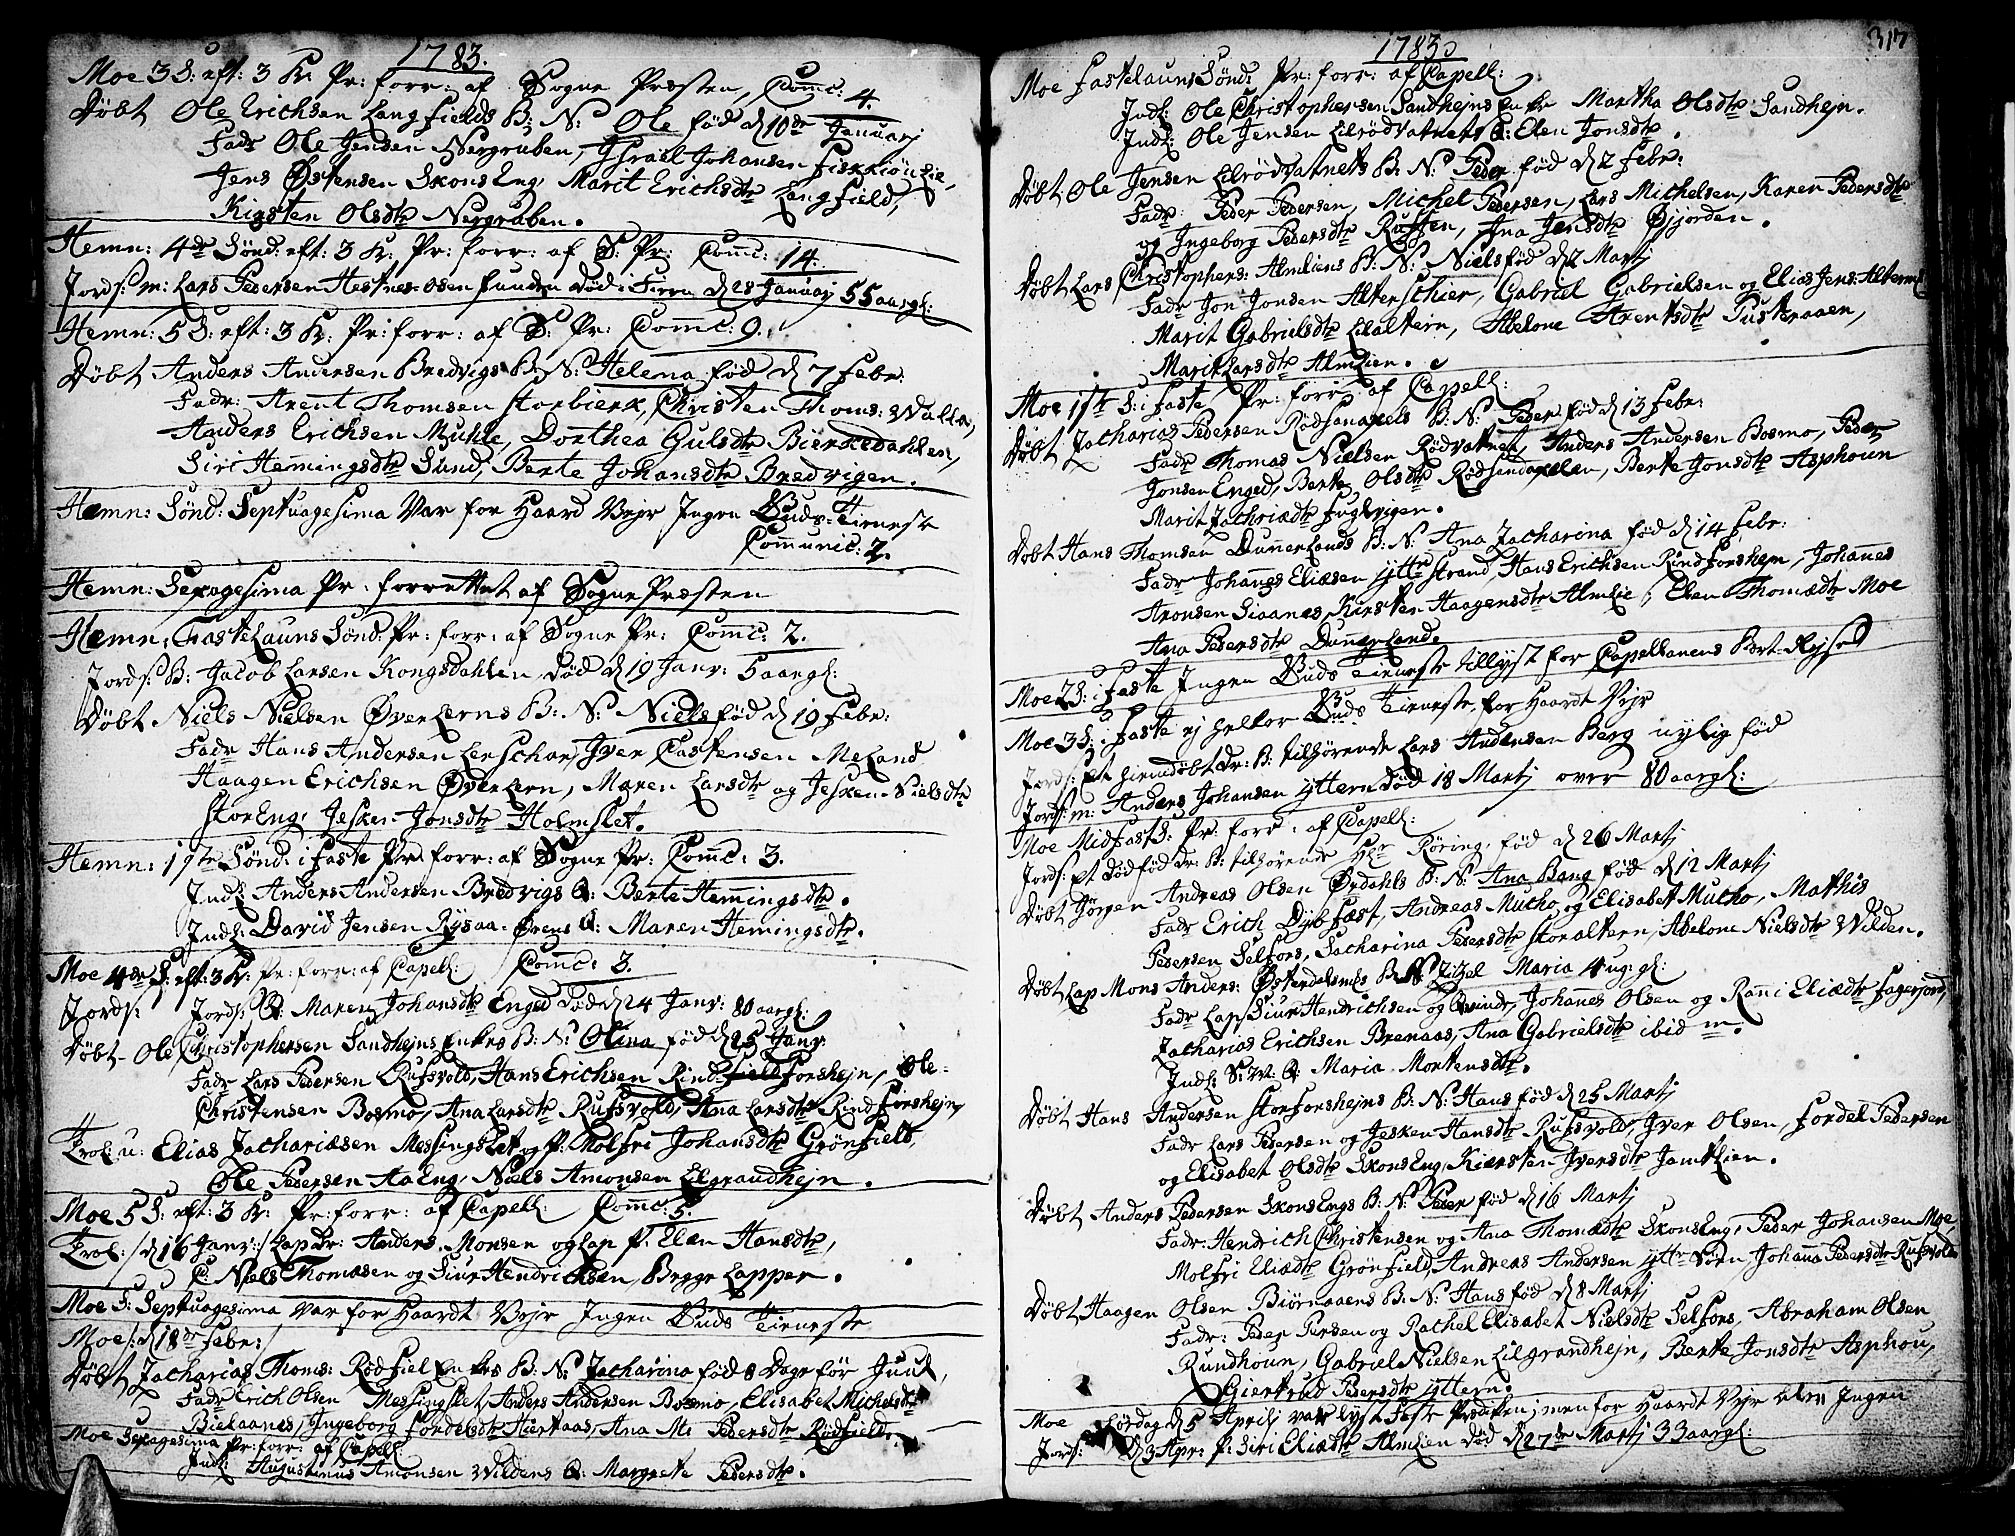 1783.
Moe 3 S: eft: 3 K: Pr: forr: af Sogne Præsten, Comc: 4.
Døbt Ole Erichsen Langfields B: N: Ole fød d 10de Januarj
Fadr Ole Jensen Nergruben, Israel Johansen
Jens Østensen SkonsEng, Marit Erichsdtr Langfield,
Kirsten Olsdtr Nergruben.
Hemn: 4de Sønd: eft: 3 K: Pr: forr: af S: Pr: Comc: 14.
Jords: m: Lars Pedersen Hestnes-osen funden Død i d 28 Januarj 55 aargl:
Hemn: 5 S: eft: 3 K: Pr: forr: af S: Pr: Comc: 9.
Døbt Anders Andersen Bredvigs B: N: Helena fød d 7 Febr:
Fadr: Arent Thomsen Storbierk, Christen Thoms: Walla,
Anders Erichsen Muhle, Dorthea Gulsdtr Bierkedahlen,
Siri Hemingsdtr Sund, Berte Johansdtr Bredvigen.
Hemn: Sønd: Septuagesima Var for Haard Vejr Ingen Guds-Tieneste
Communic: 2.
Hemn: Sexagesima Pr: forrettet af Sogne Præsten
Hemn: FasteLauns Sønd: Pr: forr: af Sogne Pr: Comc: 2.
Jords: B: Jacob Larsen Kongsdahlen død d 19 Janv: 5 aargl:
Døbt Niels Nielsen Øverlerns B: N: Niels fød d 19 Febr:
Fadr Hans Andersen Iver Castensen MeLand
Haagen Erichsen Øverlern, Maren Larsdtr og Jesken Nielsdtr
StorEng, Jesken Jonsdtr Holmslet.
Hemn: 1ste Sønd: i Faste Pr: forr: af Sogne Pr: Comc: 3.
Indl: Anders Andersen Bredvigs Q: Berte Hemmingsdtr.
Indl: David Jensen Rysaa-Ørens Q: Maren Hemingsdtr.
Moe 4de S: eft: 3 K: Pr: forr: af Capell: Comc: 3.
Jords: Jords: Q: Maren Johansdtr Enged Død d 24 Janv: 80 aargl:
Døbt Ole Christophersen Sandhejns Enkes B: N: Olina fød d 25 Janv:
Fadr Lars Pedersen Rufsvold, Hans Erichsen Rindforshejn, Ole
Christensen Bosmo, Ana Larsdtr Rufsvold, Ana Larsdtr Rindforshejn,
Trol: u: Elias Zachariæsen Messingslet og P: Molfri Johansdtr Grønfield,
Ole Pedersen AaEng, Niels Amonsen Lilgrandhejn.
Moe 5 S: eft: 3 K: Pr: forr: af Capell: Comc: 5.
Trol: /: d 16 Janv: :/ Lap Dr: Anders Monsen og Lap P. Elen Hansdtr,
C: Niels Thomasen og Siur Hendrichsen, Begge Lapper.
Moe S: Septuagesima Var for Haardt Vejr Ingen Guds Tieneste
Moe /: d 18de Febr: /
Døbt Zacharias Thoms: Rødfiel Enkes B: N: Zacharina fød 8 Dage før Juul,
Fadr Erich Olsen Messingslet, Anders Andersen Bosmo, Elisabet Michelsdtr
Bielaanes, Ingeborg Fordelsdtr Hiertaas, Ana M: Pedersdtr Rødfield.
Moe Sexagesima Pr: forr: af Capell:
Indl: Augustinus Amonsen Wildens Q: Margrete Pedersdtr.
317
1783
Moe Fastelauns Sønd: Pr: forr: af Capell:
Indl: Ole Christophersen Sandhejns Enke Martha Olsdtr Sandhejn.
Indl: Ole Jensen Lilrødvatnets Q: Elen Jonsdtr.
Døbt Ole Jensen Lilrødvatnets B: N: Peder fød d 2 Febr:
Fadr: Peder Pedersen, Michel Pedersen, Lars Michelsen, Karen Pedersdtr
og Ingeborg Pedersdtr Røssen, Ana Jensdtr Øyjorden.
Døbt Lars Christophers: Almliens B: N: Niels fød d 2 Martj
Fadr Jon Jonsen Alterschier, Gabriel Gabrielsen og Elias Jens: Alteren
Marit Gabrielsdtr Lilaltern, Abelone Arentsdtr Pusteraaen,
Marit Larsdtr Almlien.
Moe 1ste S: i Faste Pr: forr: af Capell:
Døbt Zacharias Pedersen Rødsanaxels B: N: Peder fød d 13 Febr:
Fadr Thomas Nielsen Rødvatnet, Anders Andersen Bosmo, Peder
Jonsen Enged, Berte Olsdtr Rødsandaxelen, Berte Jonsdtr Asphoun
Marit Zachriædtr Fuglvigen.
Døbt Hans Thomsen Dunnerlands B: N: Ana Zacharina fød d 14 Febr:
Fadr Johannes Eliæsen yttrstrand, Hans Erichsen Rindforshejn, Johannes
Aronsen Sioanes, Kirsten Haagensdtr Almlie, Elen Thomædtr Moe
Ana Pedersdtr Dunderland.
Moe 2 S: i Faste Ingen Guds Tieneste tillyst for Capellanens Bort-Rejse
Moe 3 S: i Faste ej heller Guds Tieneste, for Haardt Vejr
Jords: Et hiemdøbt Dr: B: tilhørende Lars Andersen Berg nylig fød
Jords: m: Anders Johansen yttern død 18 Martj over 80 aargl:
Moe Midfast S: Pr: forr: af Capell:
Jords: Et Dødfød Dr: B: tilhørende Hr Røring, fød d 26 Martj
Døbt Jørgen Andreas Olsen Ørdahls B: N: Ana Bang fød d 12 Martj
Fadr Erich Dybfest, Andreas Mucho og Elisabet Mucho, Mathis
Pedersen Selfors, Zacharina Pedersdtr Storaltern, Abelone Nielsdtr Wilden.
Døbt Lap Mons Anders: Østerdalsnes B: N: Zitzel Maria 4 ug: gl:
Fadr Lap Siur Hendrichsen og Qvinde, Johannes Olsen og Ranni Eliædtr Fagerjord,
Zacharias Erichsen Brenaas, Ana Gabrielsdtr ibidm.
Indl: S: V: Q: Maria Mortensdtr.
Døbt Hans Andersen Storforshejns B: N: Hans fød d 25 Martj
Fadr Lars Pedersen og Jesken Hansdtr Rufsvold, Iver Olsen, Fordel Pedersen
og Elisabet Olsdtr SkonsEng, Kiersten Iversdtr Jamtlien.
Døbt Anders Pedersen SkonsEngs B: N: Peder fød d 16 Martj
Fadr: Hendrich Christensen og Ana Thomædtr SkonsEng, Peder Johansen Moe,
Molfri Eliædtr Grønfield, Andreas Andersen yttr Vörn, Johanna Pedersdtr Rufsvold
Døbt Haagen Olsen Biørnaaens B: N: Hans fød d 8 Martj
Fadr: Peder Persen og Rachel Elisabet Nielsdtr Selfors, Abraham Olsen
Rundhoun, Gabriel Nielsen Lilgrandhejn, Berte Jonsdtr Asphou,
Giertrud Pedersdtr yttern.
Moe Lørdag d 5 Aprilj var lyst Faste Prædiken; men for Haardt Vejr blev Ingen
Jords: d 3 Apr: P: Siri Eliædtr Almlien død d 27de Martj 33 aargl: